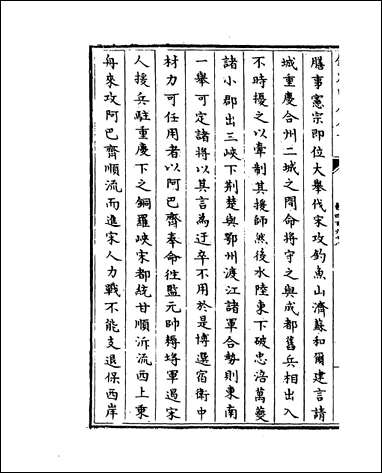 膳事憲宗即位大舉伐宋攻釣魚山濟蘇和爾建言請
城重慶合州二城之間命將守之與成都舊兵相出入
不時擾之以牽制其援師然後水陸東下破忠涪萬夔
諸小郡出三峽下荆楚與鄂州渡江諸軍合勢則東南
一舉可定諸將以其言為迂卒不用於是博選宿衛中
材力可任用者以阿巴齊奉命徃監元帥耨埒軍過宋
人援兵駐重慶下之銅羅峽宋都統甘順泝流西上乗
舟來攻阿巴齊順流而進宋人力戰不能支退保西岸